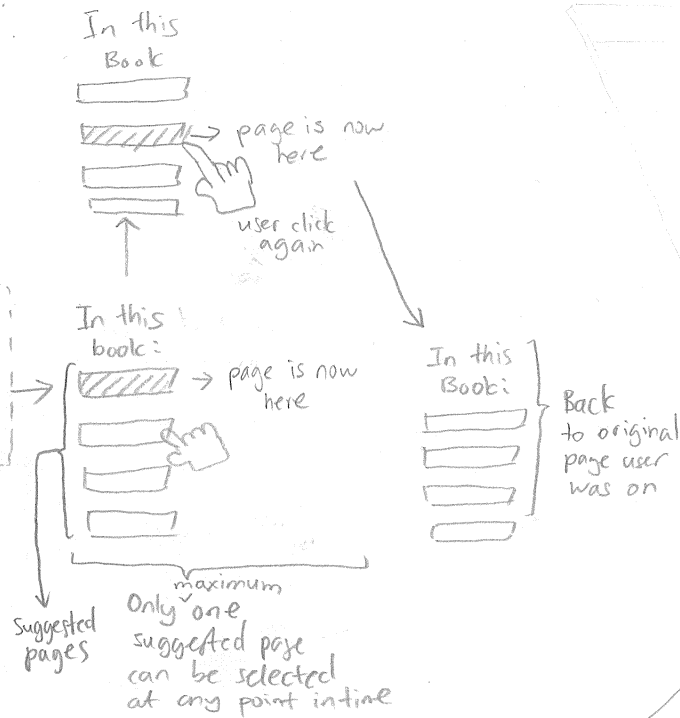 In this
Book
page is now
here
user click
again
In this
book:
page is now
here
In this
Book:
Back
to original
page user
was on
suggested
pages
maximum
Only one
suggested page
can be selected
at any point in time